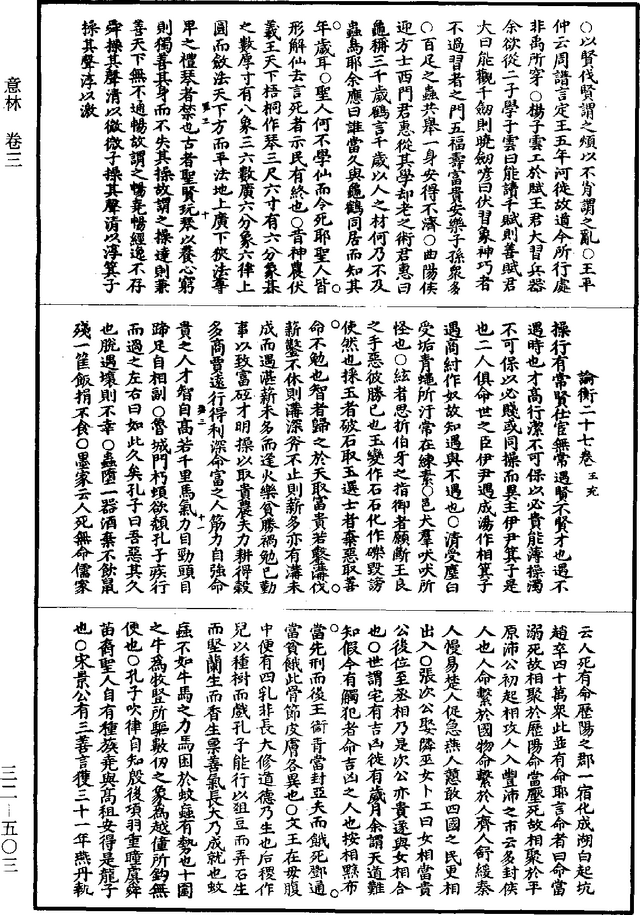 ○以賢伐賢謂之煩以不肖謂之亂○王平
仲云周譜言定王五年河徙故道今所行處
非禹所穿○楊子雲工於賦王君大習兵器
余欲從二子學子雲曰能讀千賦則善賦君
大曰能觀千劔則曉劔諺曰伏習象神巧者
不過習者之門五福壽富貴安樂子孫衆多
○百足之蟲共舉一身安得不濟○曲陽侯
迎方士西門君惠從其學却老之術君惠曰
龜稱三千歲鶴言千歲以人之材何乃不及
蟲鳥耶余應曰誰當久與龜鶴同居而知其
年歲耳○聖人何不學仙而令死耶聖人皆
形解仙去言死者示民有終也○昔神農伏
羲王天下梧桐作琴三尺六寸有六分象朞
之數厚寸有八象三六數廣六分象六律上
圓而斂法天下方而平法地上廣下狹法尊
卑之禮琴者禁也古者聖賢玩琴以養心窮
則獨善其身而不失其操故謂之操達則兼
善天下無不通暢故謂之暢堯暢經逸不存
舜操其聲清以微微子操其聲清以淳箕子
操其聲淳以激
論衡二十七卷 王充
操行有常賢仕宦無常遇賢不賢才也遇不
遇時也才高行潔不可保以必貴能薄操濁
不可保以必賤或同操而異主伊尹箕子是
也二人俱命世之臣伊尹遇成湯作相箕子
遇商紂作奴故知遇與不遇也○清受塵白
受垢青蠅所汙常在練素○邑犬羣吠吠所
怪也○絃者思折伯牙之指御者願斷王良
之手惡彼勝己也玉變作石石化作礫毀謗
使然也採玉者破石取玉選士者棄惡取善
○命不勉也智者歸之於天取富貴若鑿溝伐
薪鑿不休則溝深斧不止則薪多亦有溝未
成而遇湛薪未多而逢火樂貧勝禍勉己動
事以致富砥才明操以取貴農夫力耕得穀
多商賈遠行得利深命富之人筋力自強命
貴之人才智自高若千里馬氣力自勁頭目
蹄足自相副○魯城門朽頓欲頹孔子疾行
而過之左右曰如此久矣孔子曰吾惡其久
也脫遇壞則不幸○蟲墮一器酒棄不飲鼠
殘一筐飯捐不食○墨家云人死無命儒家
云人死有命歷陽之郡一宿化成湖白起坑
趙卒四十萬衆此並有命耶言命者曰命當
溺死故相聚於歷陽命當壓死故相聚於平
原沛公初起相攻人入豐沛之市云多封侯
人也人命繫於國物命繫於人齊人舒緩秦
人慢易楚人促急燕人戇敢四國之民更相
出入○張次公娶隣巫女卜工曰女相當貴
公後位至丞相乃是次公亦貴遂與女相合
也○世謂宅有吉凶徙有歲月余謂天道難
知假令有觸犯者命吉凶之人也按相黥布
○當先刑而後王衛青當封亞夫而餓死鄧通
當貧餓此骨節皮膚各異也○文王在母腹
中便有四乳非長大修道德乃生也后稷作
兒以種樹而戲孔子能行以俎豆而弄石生
而堅蘭生而香生禀善氣長大乃成就也蚊
蝱不如牛馬之力馬困於蚊蝱有勢也十圍
之牛爲牧豎所驅數仞之象爲越僮所鈎無
便也○孔子吹律自知殷後項羽重瞳虞舜
苗裔聖人自有種族堯與高祖安得是龍子
也○宋景公有三善言獲三十一年燕丹執
意林 卷三
三二—五〇三